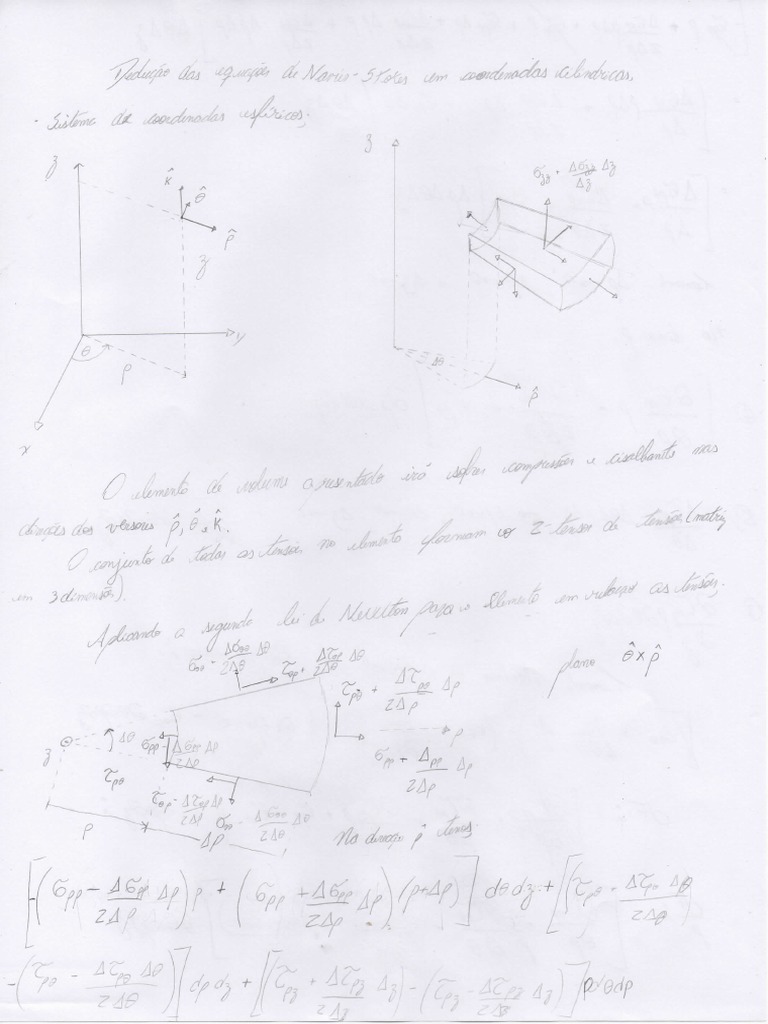 Dedução das equações de Navis-Stokes em coordenadas cilindricas,
- Sistema de coordenadas esféricos;
z
k̂
θ̂
ρ̂
z
y
θ
ρ
x
z
σzz + Δσzz/Δz Δz
Δθ
ρ̂
O elemento de volume apresentado irá sofrer compressões e cisalhante nas
direções dos versores ρ̂, θ̂ e k̂.
O conjunto de todas as tensões no elemento formam o 2-tensor de tensões (matriz
em 3 dimensões).
Aplicando a segunda lei de Newton para o Elemento em relação as tensões,
plano θ̂ x ρ̂
σθθ - Δσθθ/2Δθ Δθ
τθρ + Δτθρ/2Δθ Δθ
τρθ + Δτρθ/2Δρ Δρ
ρ
σρρ + Δρρ/2Δρ Δρ
z
Δθ
σρρ - Δσρρ Δρ/2Δρ
τρθ
τθρ - Δτθρ Δρ/2Δρ
σθθ - Δσθθ Δθ/2Δθ
ρ
Δρ
Na direção ρ̂ temos;
[-(σρρ - Δσρρ/2Δρ Δρ)ρ + (σρρ + Δσρρ/2Δρ Δρ)(ρ+Δρ)] dθ dz + [(τρθ - Δτρθ Δθ/2Δθ)
-(τρθ - Δτρθ Δθ/2Δθ)] dρ dz + [(τρz + Δτρz/2Δz Δz) - (τρz - Δτρz/2Δz Δz)] ρdθdρ